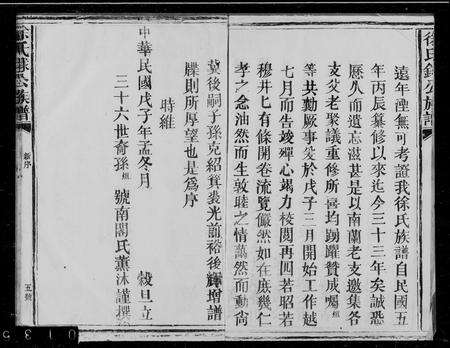 徐氏錦公族譜
遠年湮無可考證我徐氏族譜自民國五
年丙辰纂修以來迄今三十三年矣誠恐
歷久而遺忘滋甚是以南蘭老支邀集各
支父老聚議重修所喜均踴躍贊成囑
等共勷厥事爰於戊子三月開始工作越
七月而告竣殫心竭力校閱再四若昭若
穆井匕有條開卷流覽儼然如在庶幾仁
孝之念油然而生敦睦之情藹然而動尚
冀後嗣子孫克紹箕裘光前裕後輝增譜
牒則所厚望也是為序
時維
中華民國戊子年孟冬月 穀旦立
三十六世奇孫 號南閣氏薰沐謹撰
新序
五號